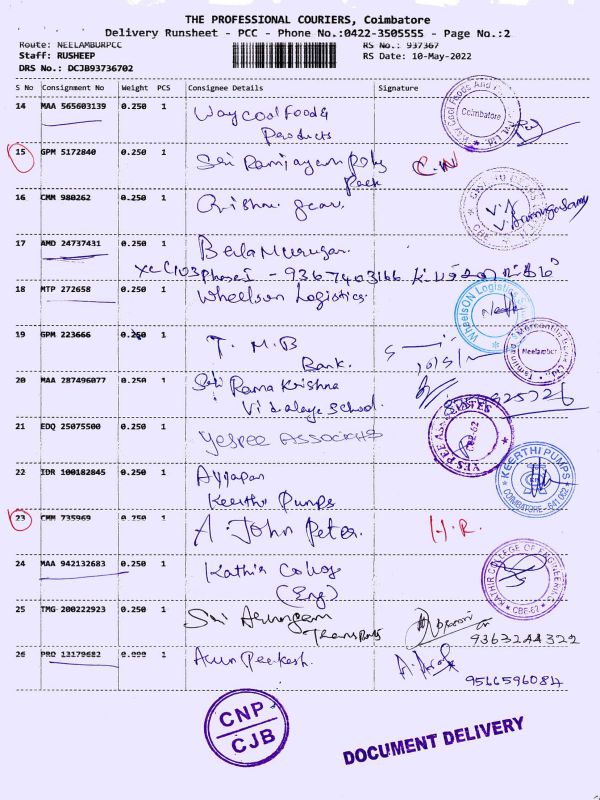 THE PROFESSIONAL COURIERS, Coimbatore
Delivery Runsheet - PCC - Phone No.:0422-3505555 - Page No.:2
Route: NEELAMBURPCC RS No.: 937367
Staff: RUSHEEP RS Date: 10-May-2022
DRS No.: DCJB93736702
S No Consignment No Weight PCS Consignee Details Signature
14 MAA 565603139 0.250 1 Waycool Foods
Products
Coimbatore
15 GPM 5172840 0.250 1 Sri Ramjayam Poly
Pack
C.N
16 CMM 980262 0.250 1 Krishna Gear.
17 AMD 24737431 0.250 1 BalaMurugan.
Phase I - 9367403166
18 MTP 272658 0.250 1 Wheelson Logistics.
WheelsON Logistics
19 GPM 223666 0.250 1 T. M. B
Bank.
Neelambur
20 MAA 287496077 0.250 1 Sri Rama Krishna
Vidyalaya School.
21 EDQ 25075500 0.250 1 YESPEE ASSOCIATES
YES PEE ASSOCIATES
22 IDR 100182845 0.250 1 Ayyapan
Keerthi Pumps
KEERTHI PUMPS
COIMBATORE - 641 062
23 CMM 735969 0.250 1 A. John Peter. H.R.
24 MAA 942132683 0.250 1 Kathir College
(Eng)
KATHIR COLLEGE OF ENGINEERING
CBE-62
25 TMG 200222923 0.250 1 Sri Arungam
Transports
9363244322
26 PRO 13179682 0.000 1 Arun Prakash.
9566596084
CNP
CJB
DOCUMENT DELIVERY